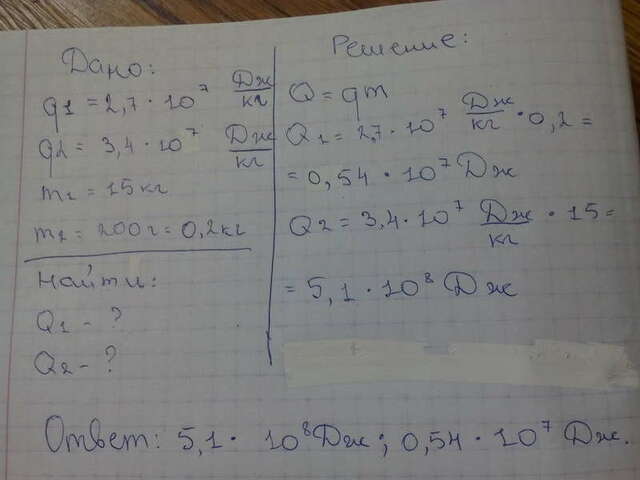 Дано:
q1 = 2,7 · 10⁷ Дж/кг
q2 = 3,4 · 10⁷ Дж/кг
m1 = 15 кг
m2 = 200 г = 0,2 кг
Найти:
Q1 - ?
Q2 - ?
Решение:
Q = qm
Q1 = 2,7 · 10⁷ Дж/кг · 0,2 =
= 0,54 · 10⁷ Дж
Q2 = 3,4 · 10⁷ Дж/кг · 15 =
= 5,1 · 10⁸ Дж
Ответ: 5,1 · 10⁸ Дж; 0,54 · 10⁷ Дж.